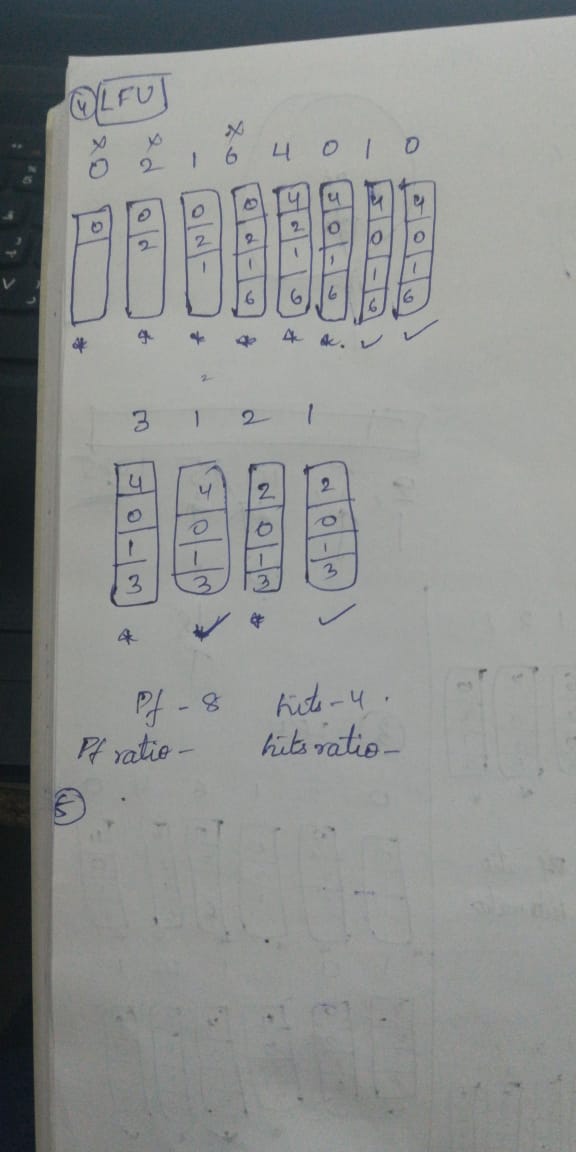 4 LFU
x x x
0 2 1 6 4 0 1 0
0 0 0 0 4 4 4 4
2 2 2 2 0 0 0
1 1 1 1 1 1
6 6 6 6 6
* * * * * *. ✓ ✓
3 1 2 1
4 4 2 2
0 0 0 0
1 1 1 1
3 3 3 3
* ✓ * ✓
Pf - 8 hits - 4 .
Pf ratio - hits ratio -
5 .